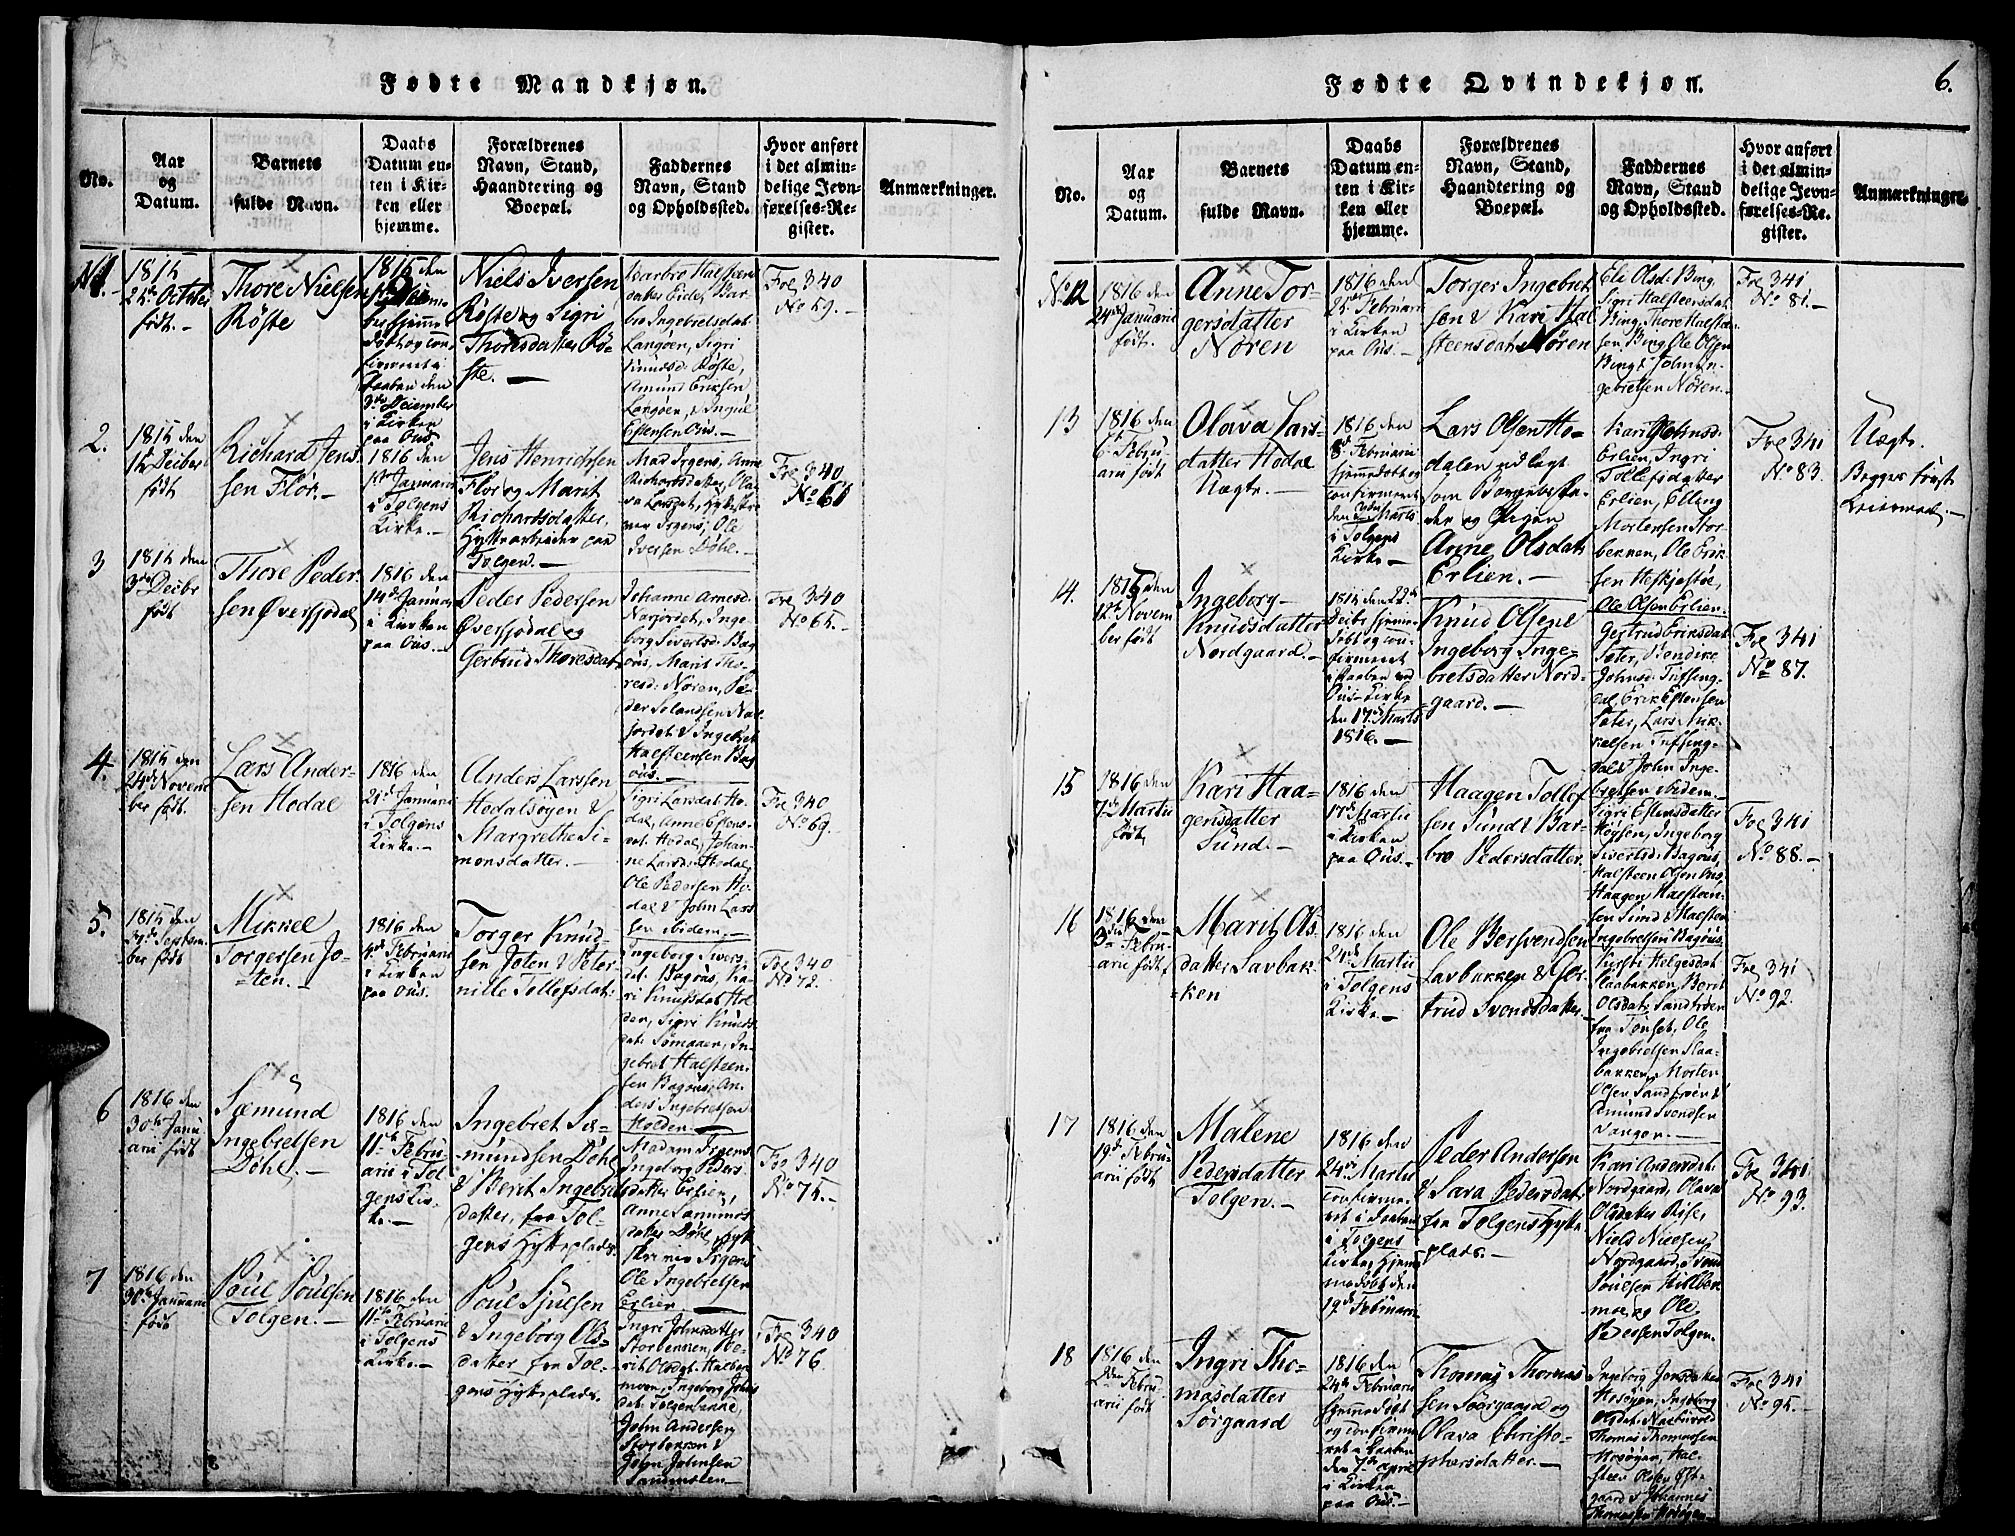 6.
Fødte Mandkjøn.
No.
Aar
og
Datum.
Barnets
fulde Navn.
Daabs
Datum en-
ten i Kir-
ken eller
hjemme.
Forældrenes
Navn, Stand,
Haandtering og
Boepæl.
Faddernes
Navn, Stand
og Opholdssted.
Hvor anført
i det almin-
delige Jevn-
førelses-Re-
gister.
Anmærkninger.
1815
Octobr
født.
Thore Nielsen
Røste
1815 den
3de December
i Kirken
paa Ous.
Niels Iversen
Røste og Sigri
Thoresdatter Rø-
ste.
Barbro Halsteens
datter Eidet, Bar-
bro Ingebretsdat.
Langøen, Sigri
Knudsd. Røste,
Amund Eriksen
Langøen, & Ingul
Estensen Ous.
Fol 340
No 59.
2.
1815 den
født
Richard Jens-
sen Flor.
1816 den
1ste Januarii
i Tolgens
Kirke.
Jens Henrichsen
Flor og Marit
Richardsdatter,
Hyttearbeider paa
Tolgen.
Mad. Irgens, Anne
Richardsdatter, Ola-
va Larsdat,
Irgens, Ole
Iversen Døhl.
Fol 340
No 61
3
1815 den
3de Decbr
født
Thore Peder-
sen Øversjødal
1816 den
14de Januarii
i Kirken
paa Ous.
Peder Pedersen
Øversjødal og
Gertrud Thoresdat.
Johanne Arnesd.
Narjordet, Inge-
borg Sivertsd. Bag-
ous, Marit Tho-
resd. Nøren, Pe-
der
jordet & Ingebret
Halsteensen Bag-
ous.
Fol 340
No 65.
4.
1815 den
24de Novem-
ber født
Lars Ander-
sen Hodal
1816 den
21de Januarii
i Tolgens
Kirke.
Anders Larssen
Hodalsøyen &
Margrethe Si-
monsdatter.
Sigri Larsdat. Ho-
dal, Anne Estens-
dat. Hodal, Johan-
ne Larsdat Hodal,
Ole Pedersen Ho-
dal & John Lars-
sen ibidem.
Fol 340
No 69.
5.
1815 den
Septem-
ber født
Mikkel
Torgersen Jo-
ten.
1816 den
4de Februarii
i Kirken
paa Ous.
Torger Knud-
sen Joten & Peter-
nille Tollefsdat.
Ingeborg Sivers-
dat. Bagous, Ka-
ri Knudsdat. Hol-
den, Sigri Knuds-
dat. Sømaaen, In-
gebret Halsteen-
sen Bagous, An-
ders Ingebretsen
Holden.
Fol 340
No 72.
6
1816 den
30te Janu-
arii født
Sæmund
Ingebretsen
Døhl.
1816 den
11te Febru-
arii i Tol-
gens Kir-
ke.
Ingebret Sæ-
mundsen Døhl
& Berit Ingebrets
datter, fra Tol-
gens Hytteplads.
Madam Irgens
Ingeborg Peders-
datter Erlien,
Anne Sæmunds
datter Døhl, Hytt-
skriver Irgens
Ole Ingebretsen
Erlien.
Fol 340
No 75.
7
1816 den
30te Januarii
født
Poul Poulsen
Tolgen.
1816 den
11te Februarii
i Tolgens
Kirke.
Poul Sjulsen
& Ingeborg Ols-
datter fra Tol-
gens Hytteplads.
Ingri Johnsdatter
Storbekken, Be-
rit Olsdat.
moen, Ingeborg Johns
dat. Tolgenbakke
John Andersen
Storbekken &
John Johnsen
Fol 340
No 76.
Fødte Qvindekjøn.
No.
Aar
og
Datum.
Barnets
fulde Navn.
Daabs
Datum en-
ten i Kir-
ken eller
hjemme.
Forældrenes
Navn, Stand,
Haandtering og
Boepæl.
Faddernes
Navn, Stand
og Opholdssted.
Hvor anført
i det almin-
delige Jevn-
førelses-Re-
gister.
Anmærkninger.
No. 12
1816 den
24de Januarii
født.
Anne Tor-
gersdatter
Nøren
1816 den
25de Februarii
i Kirken
paa Ous.
Torger Ingebret-
sen & Kari Hal-
steensdat. Nøren
Ele Olsd. Bing,
Sigri Halsteensdat.
Bing, Thore Halste-
sen Bing, Ole Olsen
Bing & John In-
gebretsen Nøren.
Fol 341
No 81.
13
1816 den
6te Febru-
arii født
Olava Lars-
datter Hodal
Uægte.
1816 den
8de Februarii
hjemmedøbt og
confirmeret
den Martii
i Tolgens
Kirke.
Lars Olsen Ho-
dalen udlagt
som Barnefa-
der og Pigen
Anne Olsdat.
Erlien.
Kari
Erlien, Ingri
Tollefsdatter
Erlien, Elling
Mortensen Stor-
bekken, Ole Erik-
sen
Ole Olsen Erlien.
Fol 341
No 83.
Uægte.
Begges første
Leiermaal.
14.
1815 den
12te Novem-
ber født
Ingeborg
Knudsdatter
Nordgaard.
1815 den 22de
Decbr hjemme-
døbt og con-
firmeret
i Daaben ved
Ous Kirke
den 17de Martii
1816.
Knud Olsen &
Ingeborg Inge-
bretsdatter Nord-
gaard.
Gertrud Eriksdat.
John Inge-
bretsen ibidem.
Fol 341
No 87.
15
1816 den
7de Martii
født
Kari Haa-
gensdatter
Sund.
1816 den
17de Martii
i Kirken
paa Ous.
Haagen Tollef-
sen Sund & Bar-
bro Pedersdatter
Sigri Estensdatter
Ingeborg
Sivertsd. Bagous,
Halsteen Olsen Ous,
Haagen Halsteen-
sen Sund & Halsten
Ingebretsen Bagous.
Fol 341
No 88.
16
1816 den
3de Febru-
arii født
Marit Ols-
datter Lavbak-
ken
1816 den
21de Martii
i Tolgens
Kirke.
Ole Bersvendsen
Lavbakken & Ger-
trud Svendsdatter.
Kirsti Helgesdat.
Slaabakken, Berit
Olsdat. Sandtrøen
fra Tønset, Ole
Ingebretsen Slaa-
bakken, Morten
Olsen Sandtrøen &
Amund Svendsen
Vangen.
Fol 341
No 92.
17
1816 den
19de Febru-
arii født
Malene
Pedersdatter
Tolgen.
1816 den
24de Martii
confirme-
ret i Daaben
i Tolgens
Kirke, hjem-
medøbt den
19de Februarii
Peder Andersen
& Sara Pedersdat.
fra Tolgens Hytte
plads.
Kari Andersdat.
Nordgaard, Olava
Olsdatter Riise,
Niels Nielsen
Nordgaard, Svend
Poulsen
moe og Ole
Pedersen Tolgen.
Fol 341
No 93.
18
1816 den
2den Febru-
arii født
Ingri Tho-
masdatter
Sørgaard
1816 den
24de Februarii
hjemmedøbt
og confirme-
ret i Daaben
den 7de April
i Kirken
paa Ous.
Thomas Thomas-
sen Sørgaard og
Olava Christo-
phersdatter.
Ingeborg Jonsdatter
Mosøyen, Ingeborg
Olsdat.
Thomas Thomassen
Mosøyen, Hal-
steen Olsen Øst-
gaard & Johannes
Thomassen Mosøyen.
Fol 341
No 95.